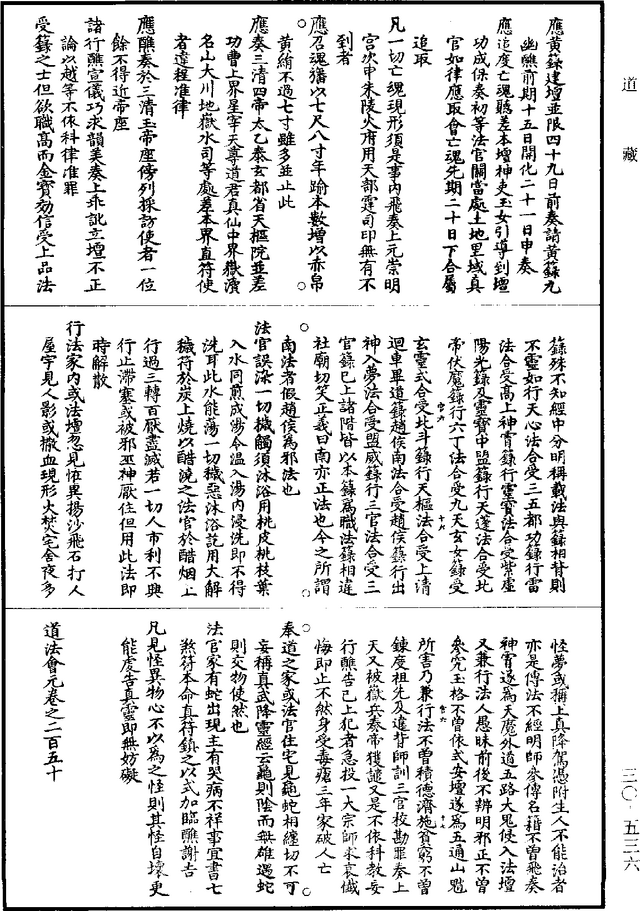 道藏
應黃籙建壇並限四十九日前奏請黃籙九
幽醮前期十五日開化二十一日申奏
應追度亡魂聽差本壇神吏玉女引導到壇
功成保奏初等法官關當處土地里域真
官如律應取會亡魂先期二十日下合屬
追取
凡一切亡魂現形須是事內飛奏上元崇明
宮次申朱陵火府用天部霆司印無有不
到者
應召魂旛以七尺八寸年踰本數增以亦帛
黃紵不過七寸雖多並止此
應奏三清四帝太乙泰玄都省天樞院並差
功曹上界星宰天尊道君真仙中界嶽瀆
名山大川地嶽水司等處差本界直符使
者違程准律
應醮奏於三清玉帝座傍列採訪使者一位
餘不得近帝座
諸行醮宣儀巧求韻美奏上乖訛立壇不正
論以越等不依科律准罪
受籙之士但欲職高而金寶効信受上品法
籙殊不知經中分明稱載法與籙相背則
不靈如行天心法合受三五都功籙行雷
法合受高上神霄籙行靈寶法合受紫虛
陽光籙及靈寶中盟籙行天蓬法合受北
帝伏魔籙行六丁法合受九天玄女籙受
玄靈式合受北斗籙行天樞法合受上清
迴車畢道籙趙侯南法合受趙侯籙行出
神入夢法合受盟威籙行三官法合受三
官籙已上諸階皆以本籙為職法籙相違
社廟切笑正義曰南亦正法也今之所謂
南法者假趙侯為邪法也
法官誤染一切穢觸須沐浴用桃皮桃枝葉
入水同煎成湯令溫入湯內浸洗即不得
洗耳此水能蕩一切穢惡沐浴訖用大解
穢符於炭上燒以醋澆之法官於醋烟上
行過三轉百厭盡滅若一切人市利不興
行止滯塞或被邪巫神厭住但用此法即
時解散
行法家內或法壇忽見怪異揚沙飛石打人
屋宇見人影或撒血現形火焚宅舍夜多
怪夢或稱上真降駕憑附生人不能治者
亦是傳法不經明師參傳名籍不曾飛奏
神霄遂為天魔外道五路大鬼侵入法壇
又兼行法人愚昧前後不辨明邪正不曾
參究玉格不曾依式安壇遂為五通山魈
所害乃兼行法不曾積德濟施貧窮不曾
鍊度祖先及違背師訓三官校勘罪奏上
天又被獄兵奏帝獲譴又是不依科教妄
行醮告已上犯者急投一大宗師求哀懺
悔即止不然身受毒瘡三年家破人亡
奉道之家或法官住宅見龜蛇相纏切不可
妄稱真武降靈經云龜則陰而無雄遇蛇
則交物使然也
法官家有蛇出現主有哭病不祥事宜書七
煞符本命真符鎮之以式加臨醮謝吉
凡見怪異物心不以為之怪則其怪自壞更
能虔告真靈即無妨礙
道法會元卷之二百五十
三〇‧五三六